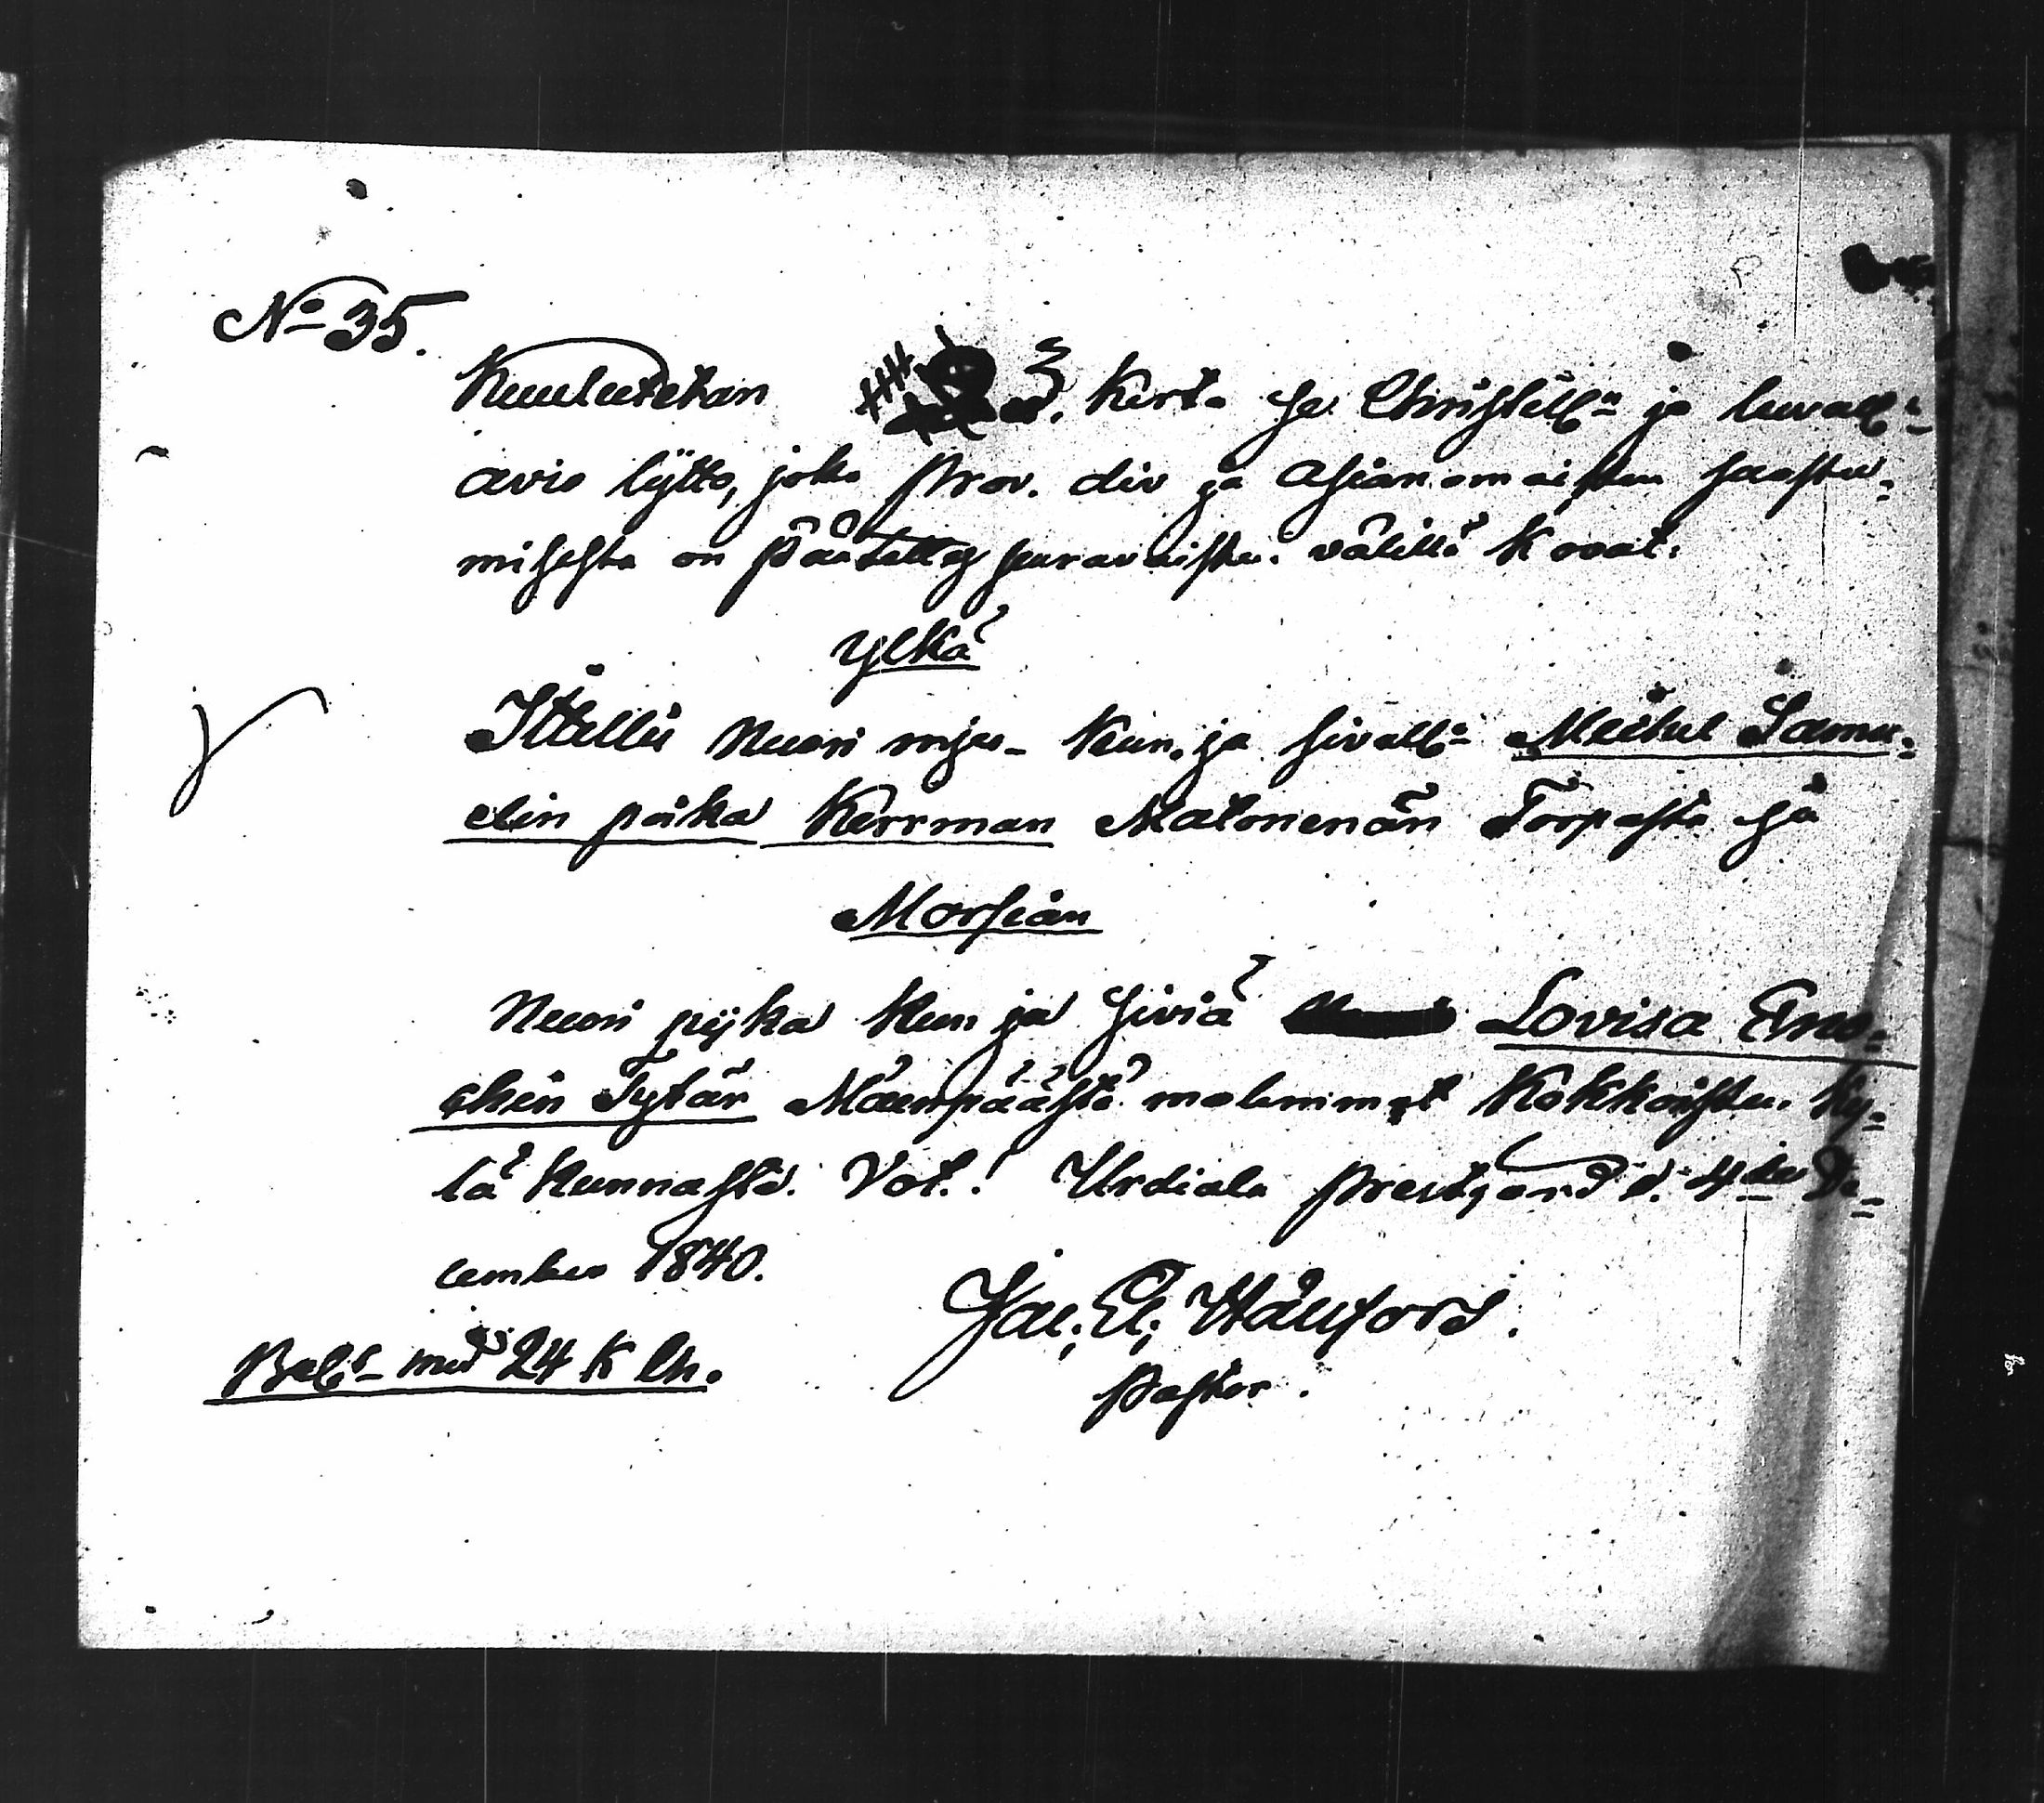 No 35.
Kuulutetan 3. Kerta se Christilln ja luvalln
avio lijtto, joka Prov. div ja asianomaisten suostu=
misesta on päätetty seuravaisten välillä K ovat.
Ylkä
Itellis Nuori mjes- Kun. ja sivalln Meikel Samu=
elin poika Kerrman Matonenän Torpasta ja
Morsian
Nuori pijka Kun ja Siviä Lovisa Eno=
chin Tytär Mäenpäästä molemmat Kokkoisten Ky=
lä Kunnasta. Vot.! Urdiala Prestgård d. 4de De=
cember 1840.
Jac. El. Wallfors.
Pastor.
Bel. med 24 K